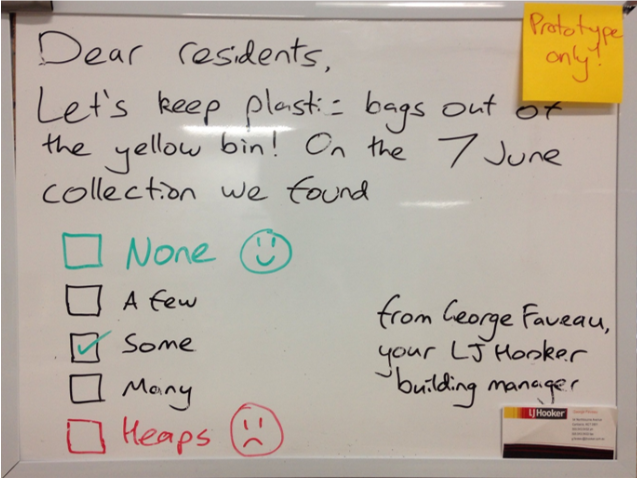 Prototype
only!
Dear residents,
Let's keep plastic bags out of
the yellow bin! On the 7 June
collection we found
None
A few
Some
Many
Heaps
from George Faveau,
your LJ Hooker
building manager
LJ Hooker